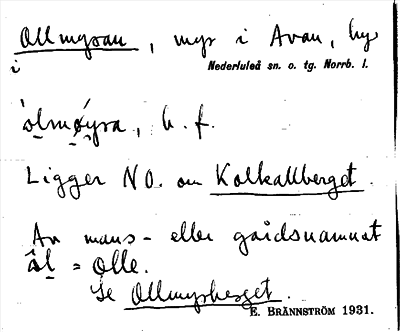 Ollmyran, myr i Avan, by
i Nederluleå sn. o. tg. Norrb. l.
ò̀lmøyra, b. f.
Ligger NO. om Kolkallberget.
Av mans- eller gårdsnamnet
âl = Olle.
Se Ollmyrberget.
E. BRÄNNSTRÖM 1931.